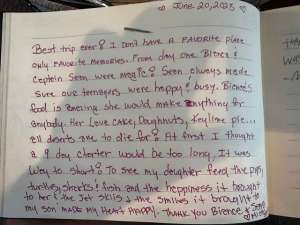 June 20, 2023
Best trip ever! I Don't have a FAVORITE place
only favorite memories. From day one Bionce &
Captain Sean were magic! Sean always made
sure our teenagers were happy & busy. Bionce's
food is amazing she would make anything for
anybody. Her Love CAKE, Doughnuts, Key lime pie...
all deserts are to die for! At first I thought
a 9 day charter would be too long, It was
way to short! To see my daughter feed the pigs,
turtles, sharks! fish and the happiness it brought
to her & the Jet skiis & the smiles it brought to
my son made my Heart HAPPY. Thank you Bionce &